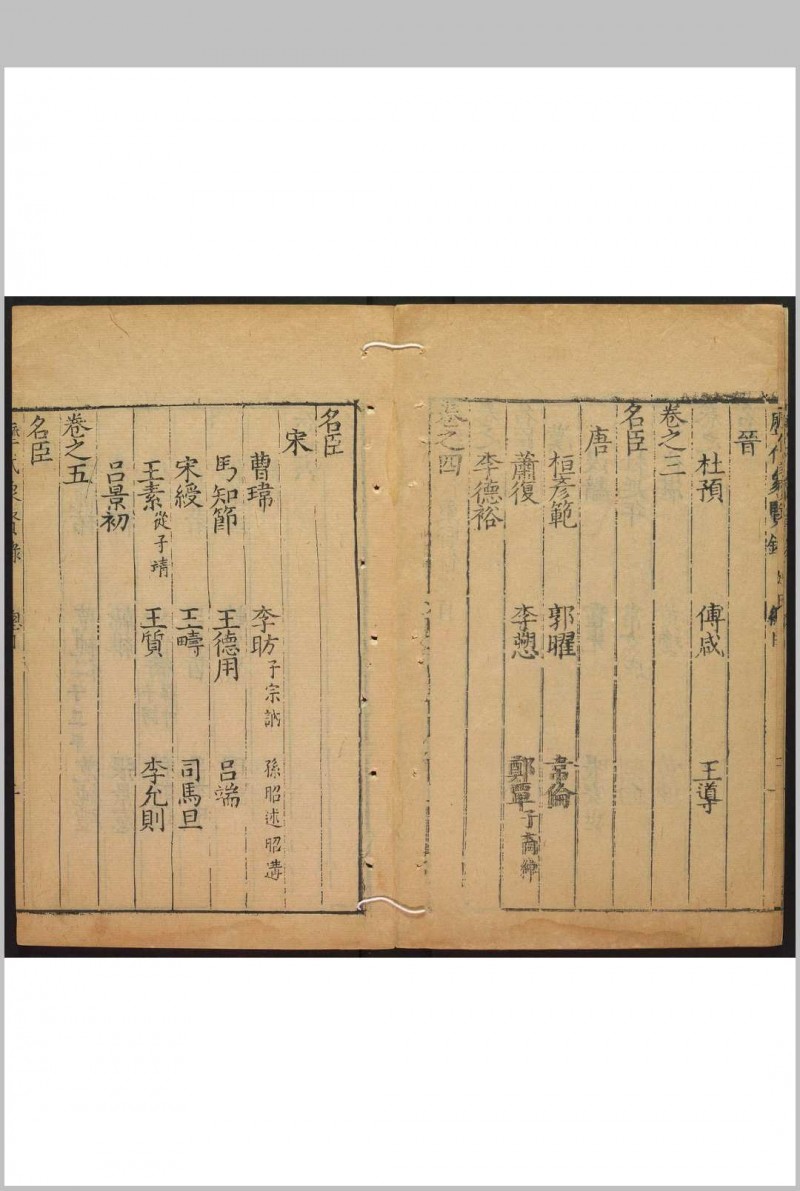 晉
杜預 傅咸 王導
卷之三
名臣
唐
桓彥範 郭曜 韋倫
蕭復 李愬 鄭覃子裔綽
李德裕
卷之四
名臣
宋
曹瑋 李昉子宗訥 孫昭述昭遘
馬知節 王德用 呂端
宋綬 王疇 司馬旦
王素從子靖 王質 李允則
呂景初
卷之五
名臣